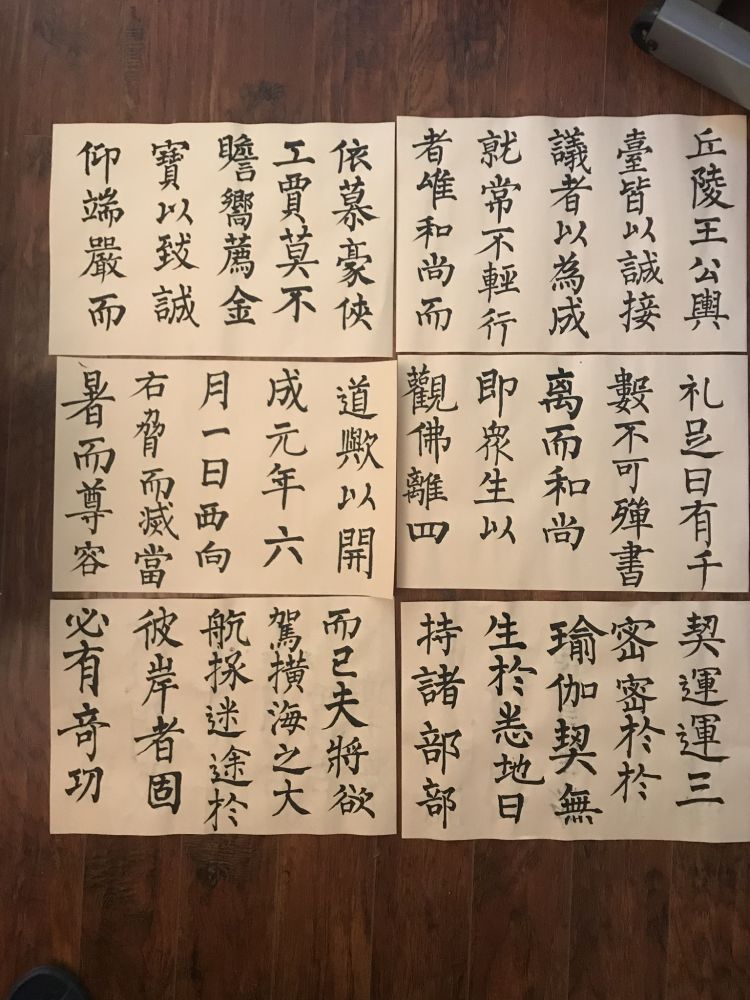 丘陵王公輿
臺皆以誠接
議者以為成
就常不輕行
者唯和尚而
依慕豪俠
工賈莫不
瞻嚮薦金
寶以致誠
仰端嚴而
礼足日有千
數不可殫書
离而和尚
即衆生以
觀佛離四
道歟以開
成元年六
月一日西向
右脅而滅當
暑而尊容
契運運三
密密於於
瑜伽契無
生於悉地日
持諸部部
而已夫將欲
駕橫海之大
航拯迷途於
彼岸者固
必有奇功